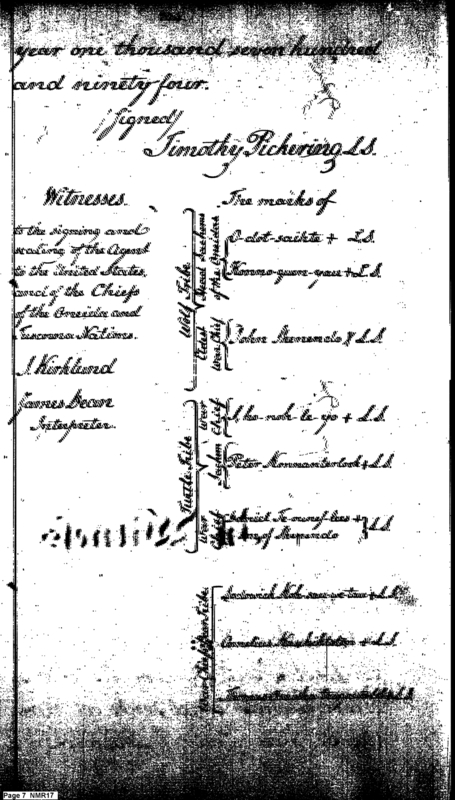 year one thousand seven hundred
and ninety four.
(Signed)
Timothy Pickering L.S.
Witnesses
to the signing and
sealing of the Agent
to the United States,
and of the Chiefs
of the Oneida and
Tuscorora Nations.
S Kirkland
James Dean
Interpreter.
The marks of
Wolf Tribe
Head Sachems
of the Oneidas
O-dot-saihte + L.S.
Konno-quen-yau + L.S.
Eldest
War Chief
John Skenendo X L.S.
Turtle Tribe
War
Chief
S, ho-noh-le-yo + L.S.
Sachem
Peter + L.S.
War
Chief
+
of Skenendo
L.S.
Lodowick + L.S.
Cornelius + L.S.
L.S.
Page 7 NMR17